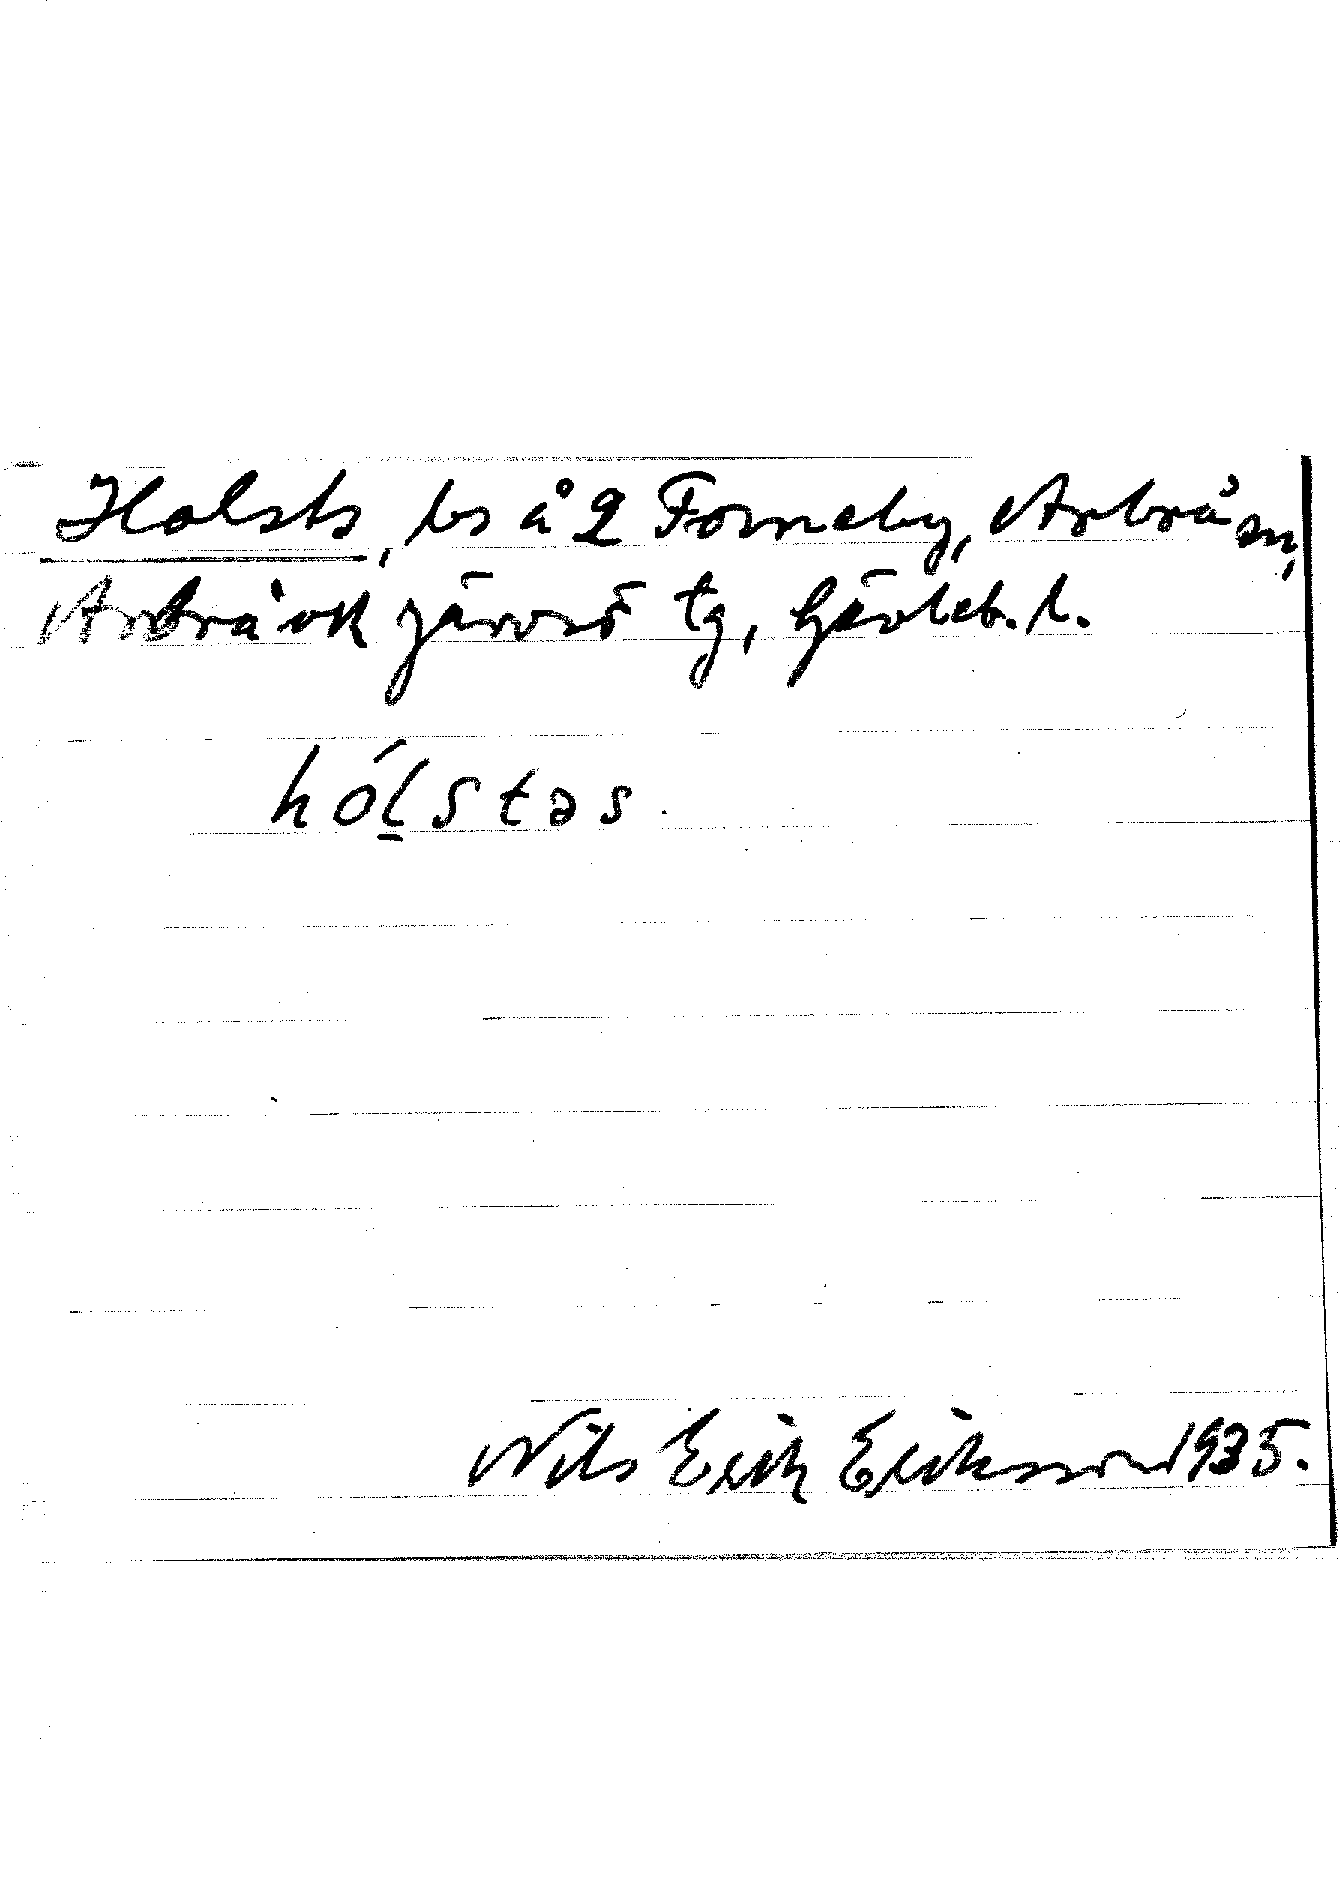 Holsts, bs å 2 Forneby, Arbrå sn,
Arbrå ok Järvsö tg, Gävleb. l.
hól̲stəs.
Nils Erik Eriksson 1935.